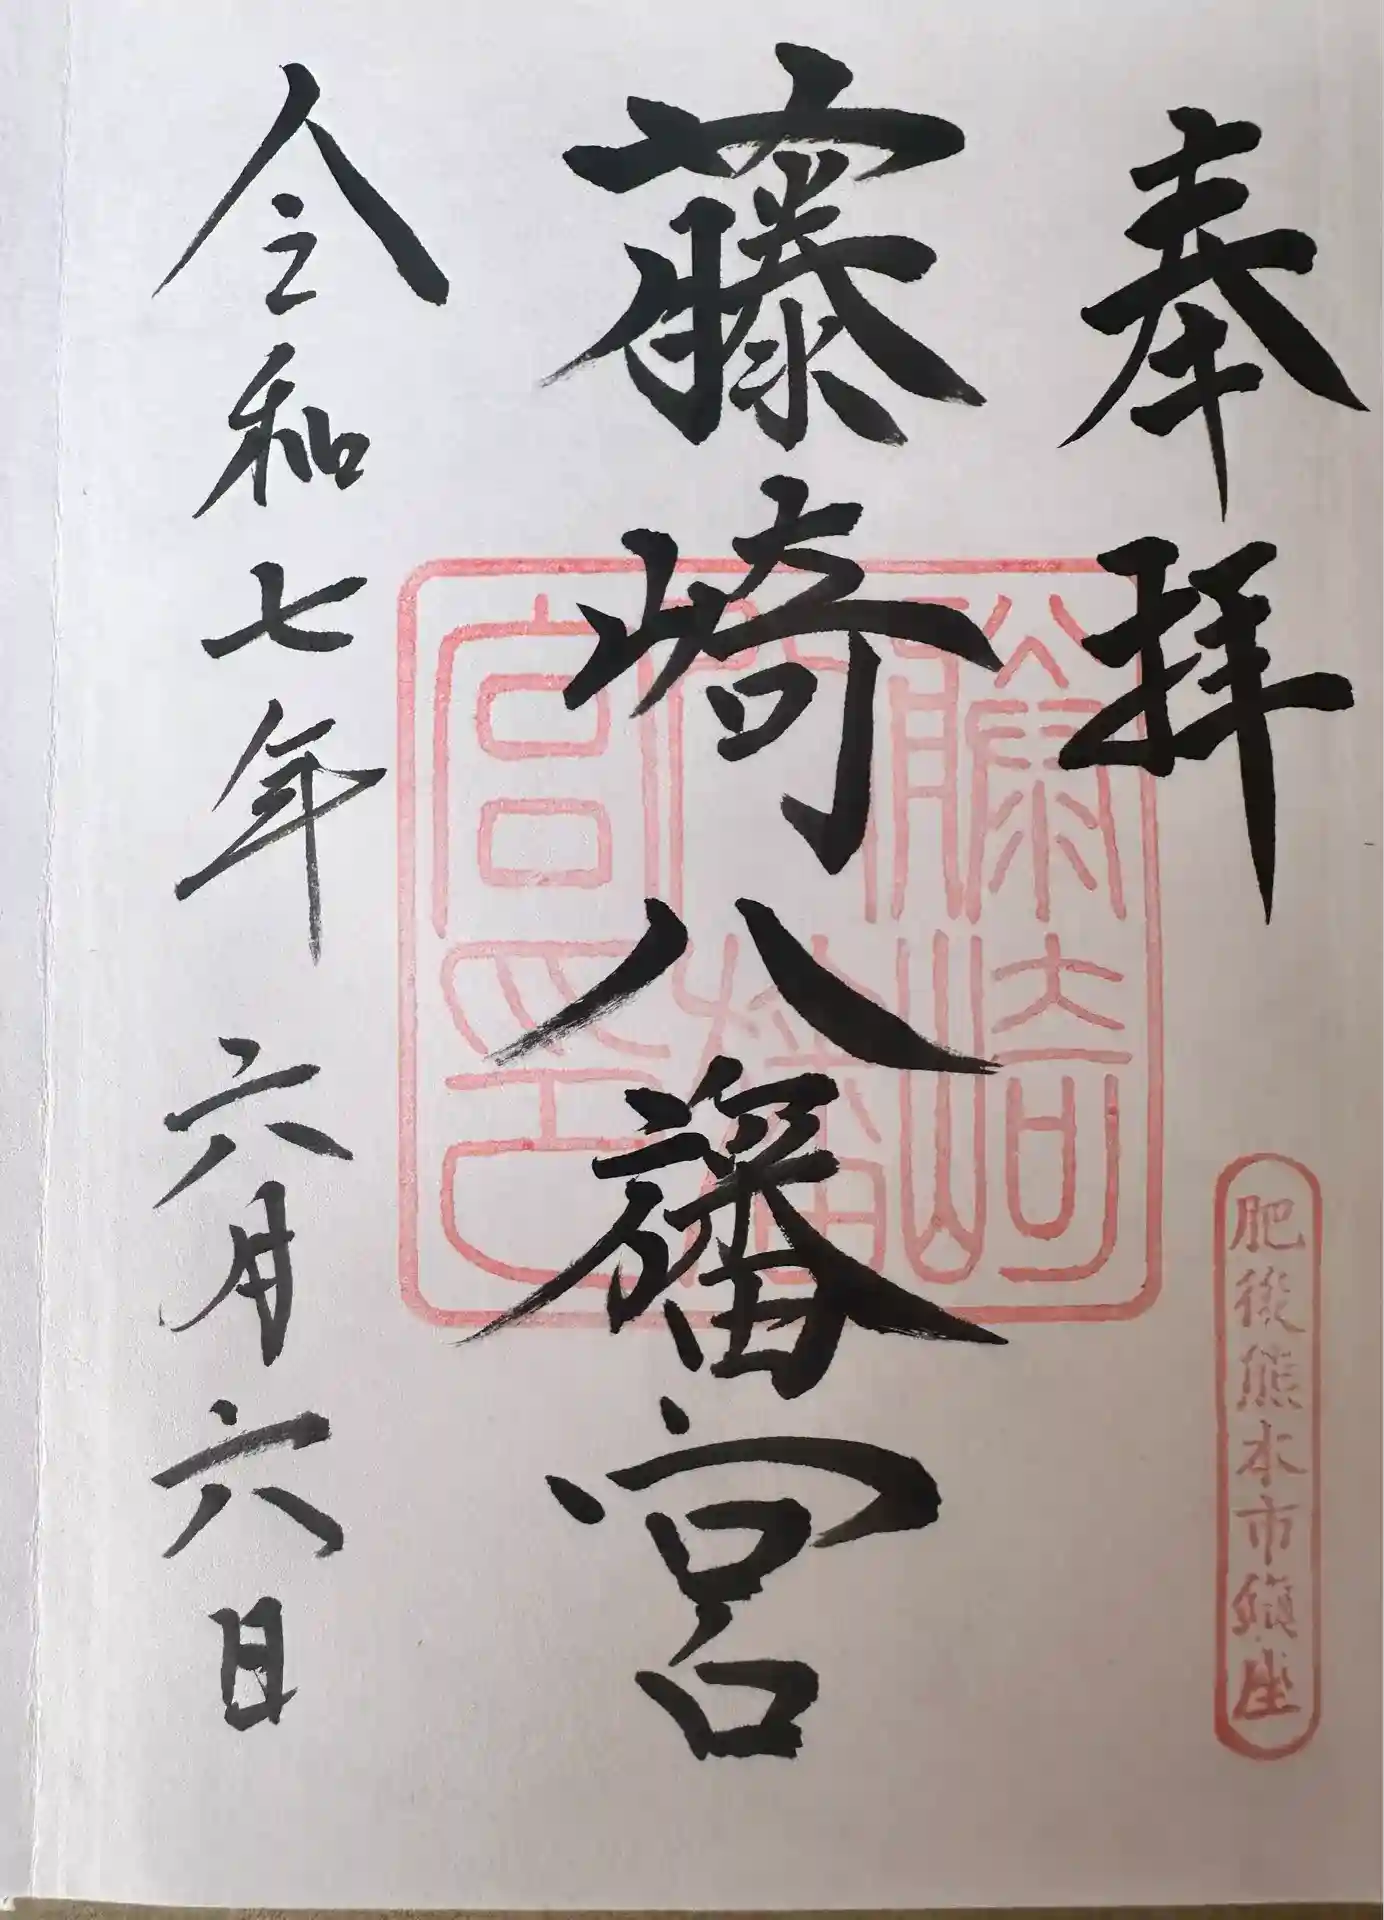 奉拝
肥後熊本市鎮座
藤崎八旛宮
藤崎
八旛
宮印
令和七年六月六日